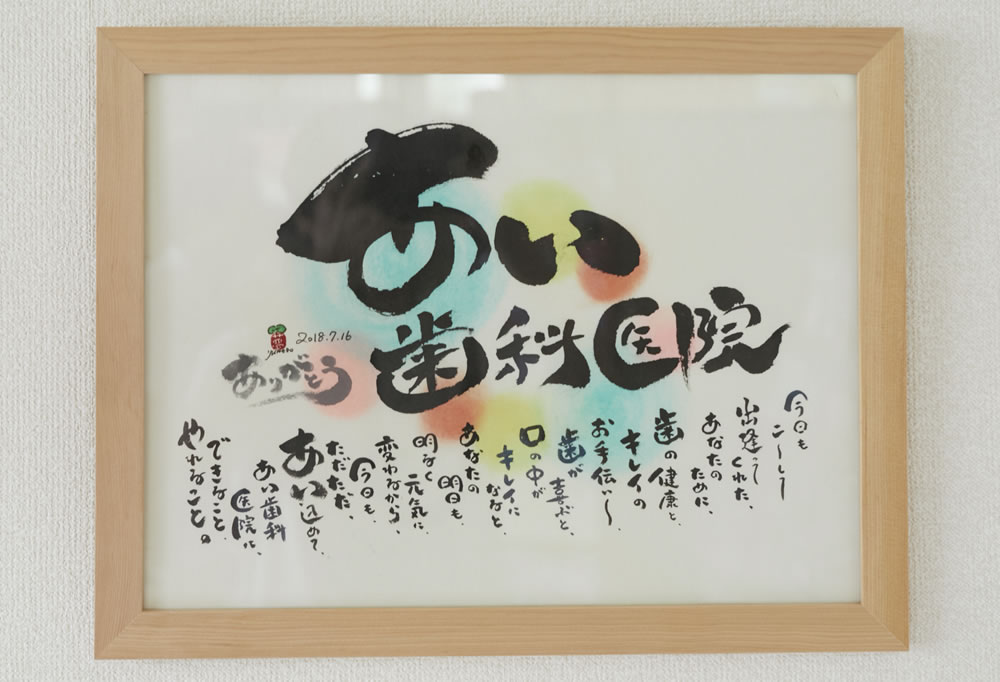 あい
歯科医院
2018.7.16
ありがとう
今日も
こーして
出逢ってくれた、
あなたの
ために、
歯の健康と、
キレイの
お手伝い〜、
歯が
喜ぶと、
口の中が
キレイに
なると、
あなたの
明日も、
明るく
元気に、
変わるから、
今日も、
ただただ、
あい込めて、
あい歯科
医院は、
できること、
やれること。